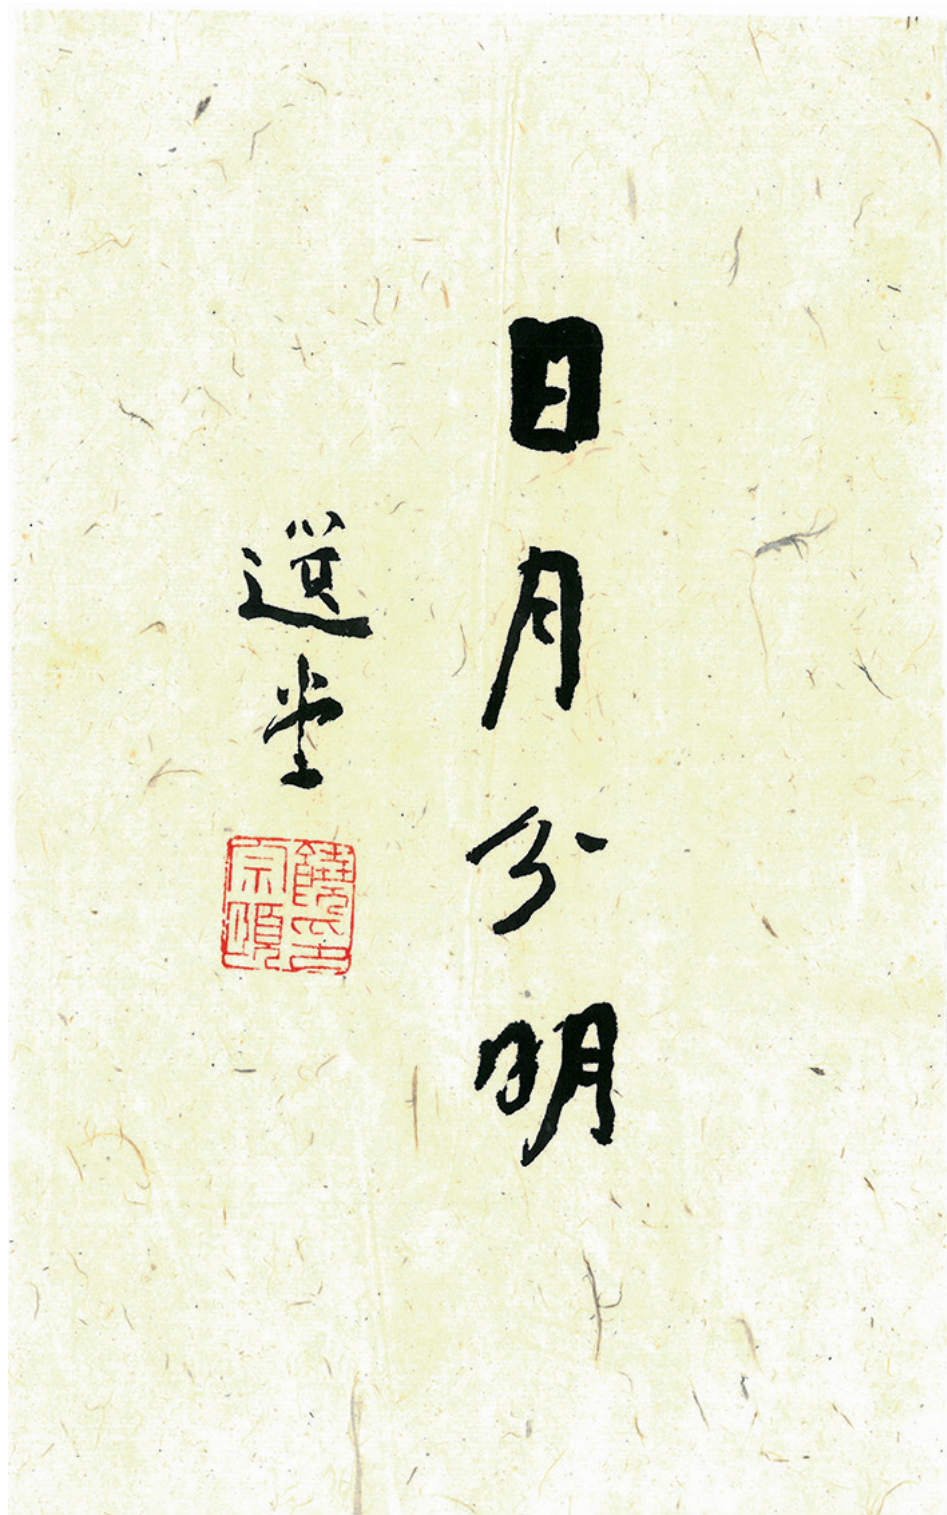 日月分明
選堂
饒氏宗頤